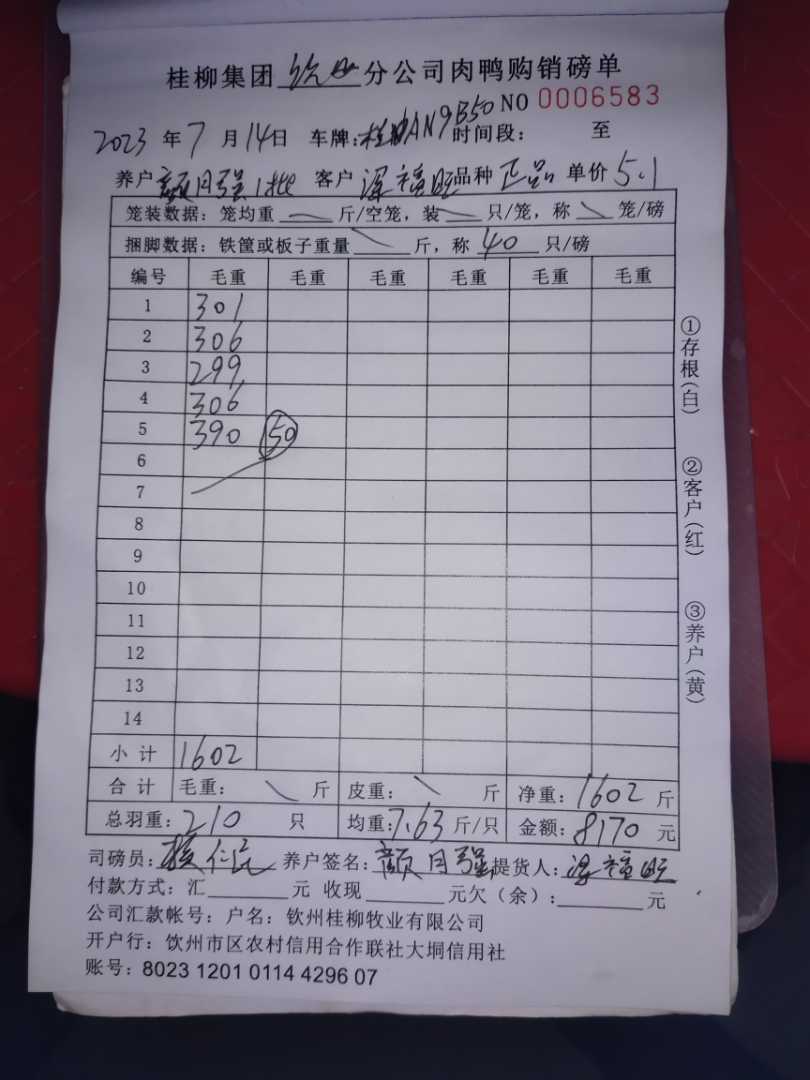 桂柳集团 钦州 分公司肉鸭购销磅单
NO 0006583
2023 年 7 月 14 日 车牌: 桂AN9B50 时间段: 至
养户 颜月强1批 客户 梁福旺 品种 正品 单价 5.1
笼装数据: 笼均重 斤/空笼, 装 只/笼, 称 笼/磅
捆脚数据: 铁筐或板子重量 斤, 称 40 只/磅
编号 毛重 毛重 毛重 毛重 毛重 毛重
1 301
2 306
3 299
4 306
5 390 50
6
7
8
9
10
11
12
13
14
小计 1602
合计 毛重: 斤 皮重: 斤 净重: 1602 斤
总羽重: 210 只 均重: 7.63 斤/只 金额: 8170 元
司磅员: 养户签名: 颜月强 提货人: 梁福旺
付款方式: 汇 元 收现 元欠(余): 元
公司汇款帐号: 户名: 钦州桂柳牧业有限公司
开户行: 饮州市区农村信用合作联社大垌信用社
账号: 8023 1201 0114 4296 07
①存根(白)
②客户(红)
③养户(黄)